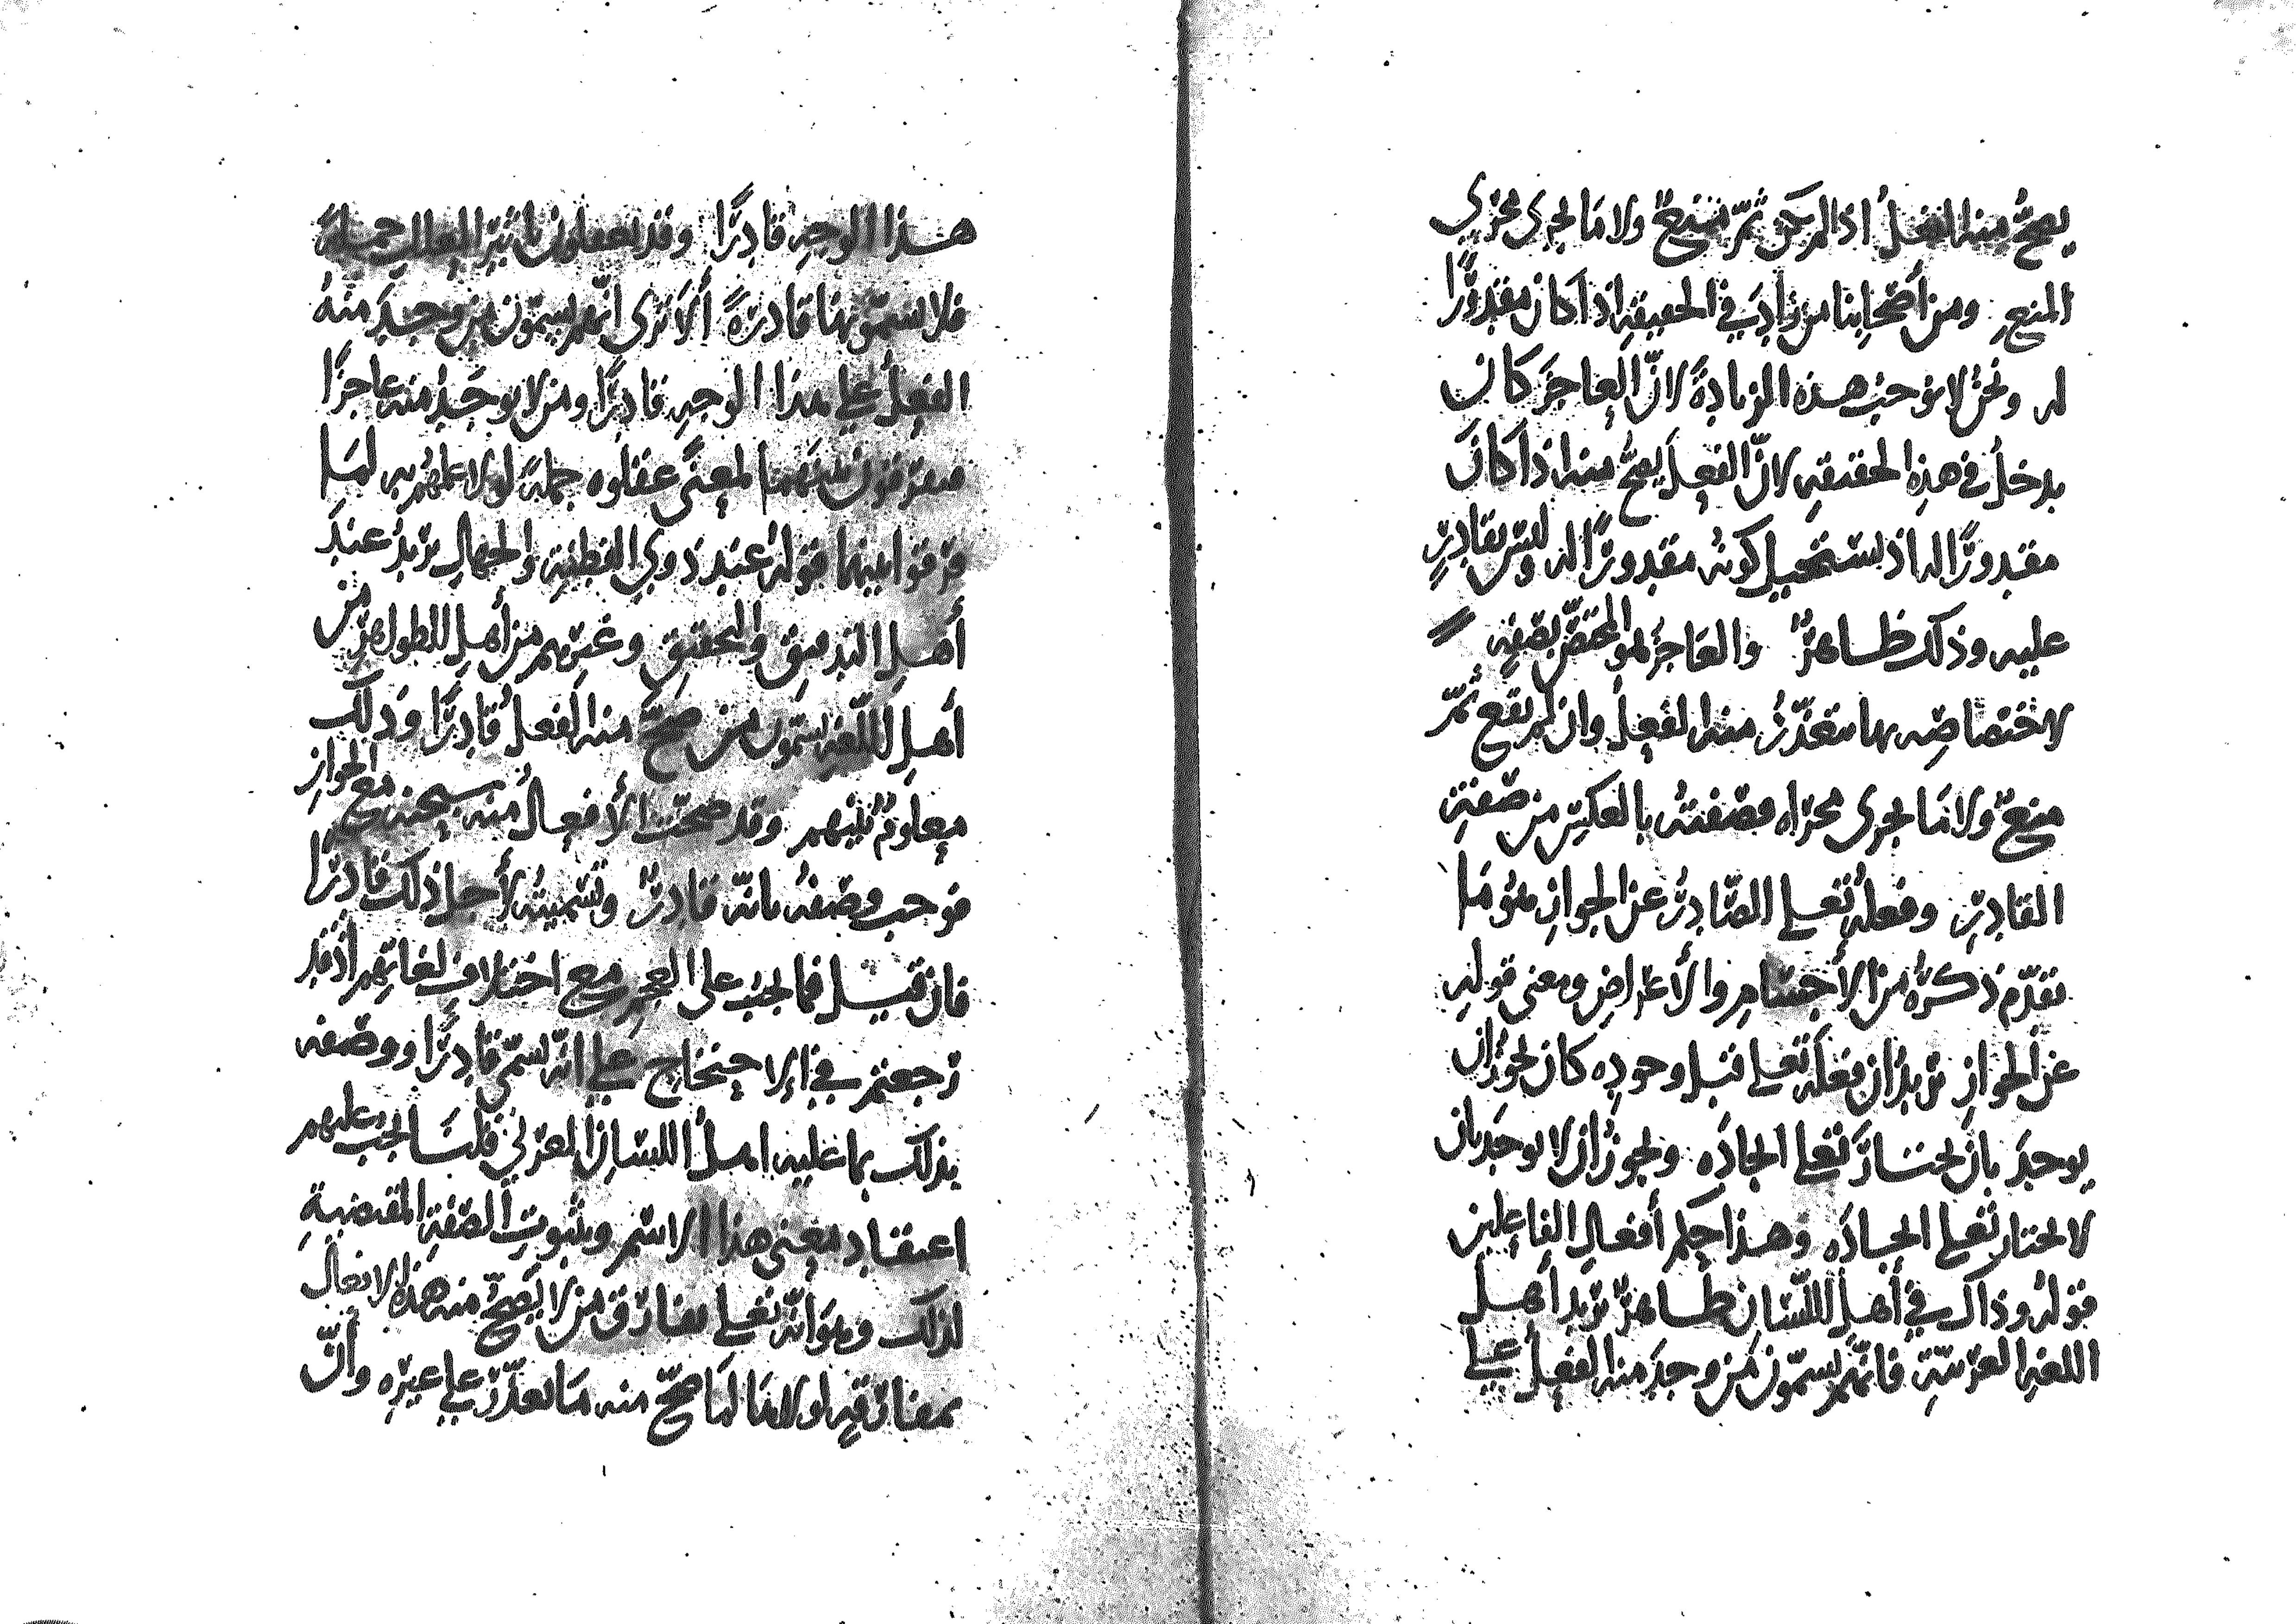 يصحّ منه الفعل اذا لم يكن ثمّ منع ولا ما يجرى مجرى
المنع ومن أصحابنا من زاد في الحقيقه اذا كان مقدورًا
له ونحن لا نوجب هذه الزيادة لانّ العاجز كان
يدخل في هذه الحقيقه لانّ الفعل يصحّ منه اذا كان
مقدورًا له اذ يستحيل كونه مقدورًا له وليس بقادرٍ
عليه وذلك ظاهرٌ والعاجز هو المختصّ بصفه
لاختصاصه بها يتعذّر منه الفعل وان لم يقع ثمّ
منعٌ ولا ما يجرى مجراه فصفته بالعكس من صفة
القادر وفعله تعلى الصّادر عن الجواز هو ما
تقدّم ذكره من الأجسام والأعراض ومعنى قوله
عن الجواز يريد ان فعله تعلى قبل وجوده كان يجوز ان
يوجد بان يختار تعلى ايجاده ويجوز ان لا يوجد بان
لا يختار تعلى ايجاده وهذا حكم أفعال الفاعلين
قوله وذاك في أهل اللّسان ظاهرٌ يريد أهل
اللغه العربيّة فانّهم يسمّون من وجد منه الفعل على
هذا الوجه قادرًا وقد يعقلون تاثير المعاني جملةً
فلا يسمّونها قادرةً ألا ترى انّهم يسمّون من وجد منه
الفعل على هذا الوجه قادرًا ومن لا يوجد منه عاجزًا
فيفرقون بينهما لمعنًى عقلوه جملةً لولا علمهم به لما
فرّقوا بينهما قوله عند ذوي الفطنة والجهال يريد عند
أهل التدقيق والتحقيق وغيرهم من أهل الظواهر من
أهل اللّغه يسمّون من صحّ منه الفعل قادرًا وذلك
معلومٌ بينهم وقد صحّت الأفعال منه سبحنه مع الجواز
فوجب وصفه بانّه قادرٌ وتسميته لأجل ذلك قادرًا
فان قيل فما يجب على العجم مع اختلاف لغاتهم اذ قد
رجعتم في الاحتجاج على انّه يسمّى قادرًا ووصفه
بذلك بما عليه اهل اللسان العربي قلنا يجب عليهم
اعتقاد معنى هذا الاسم وثبوت الصّفة المقتضية
لذلك وهو انّه تعلى مفارق من لا يصحّ منه هذه الافعال
بمفارقة لولاها لما صحّ منه ما تعذّر على غيره وأنّ